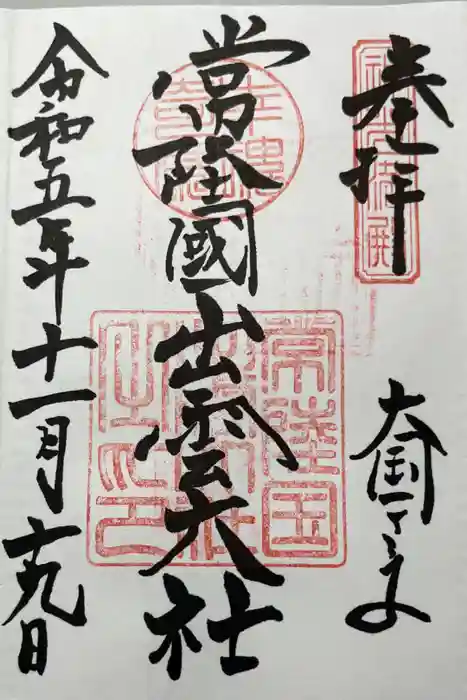 奉拝
大国さま
常陸國出雲大社
常陸国
令和五年十一月十九日